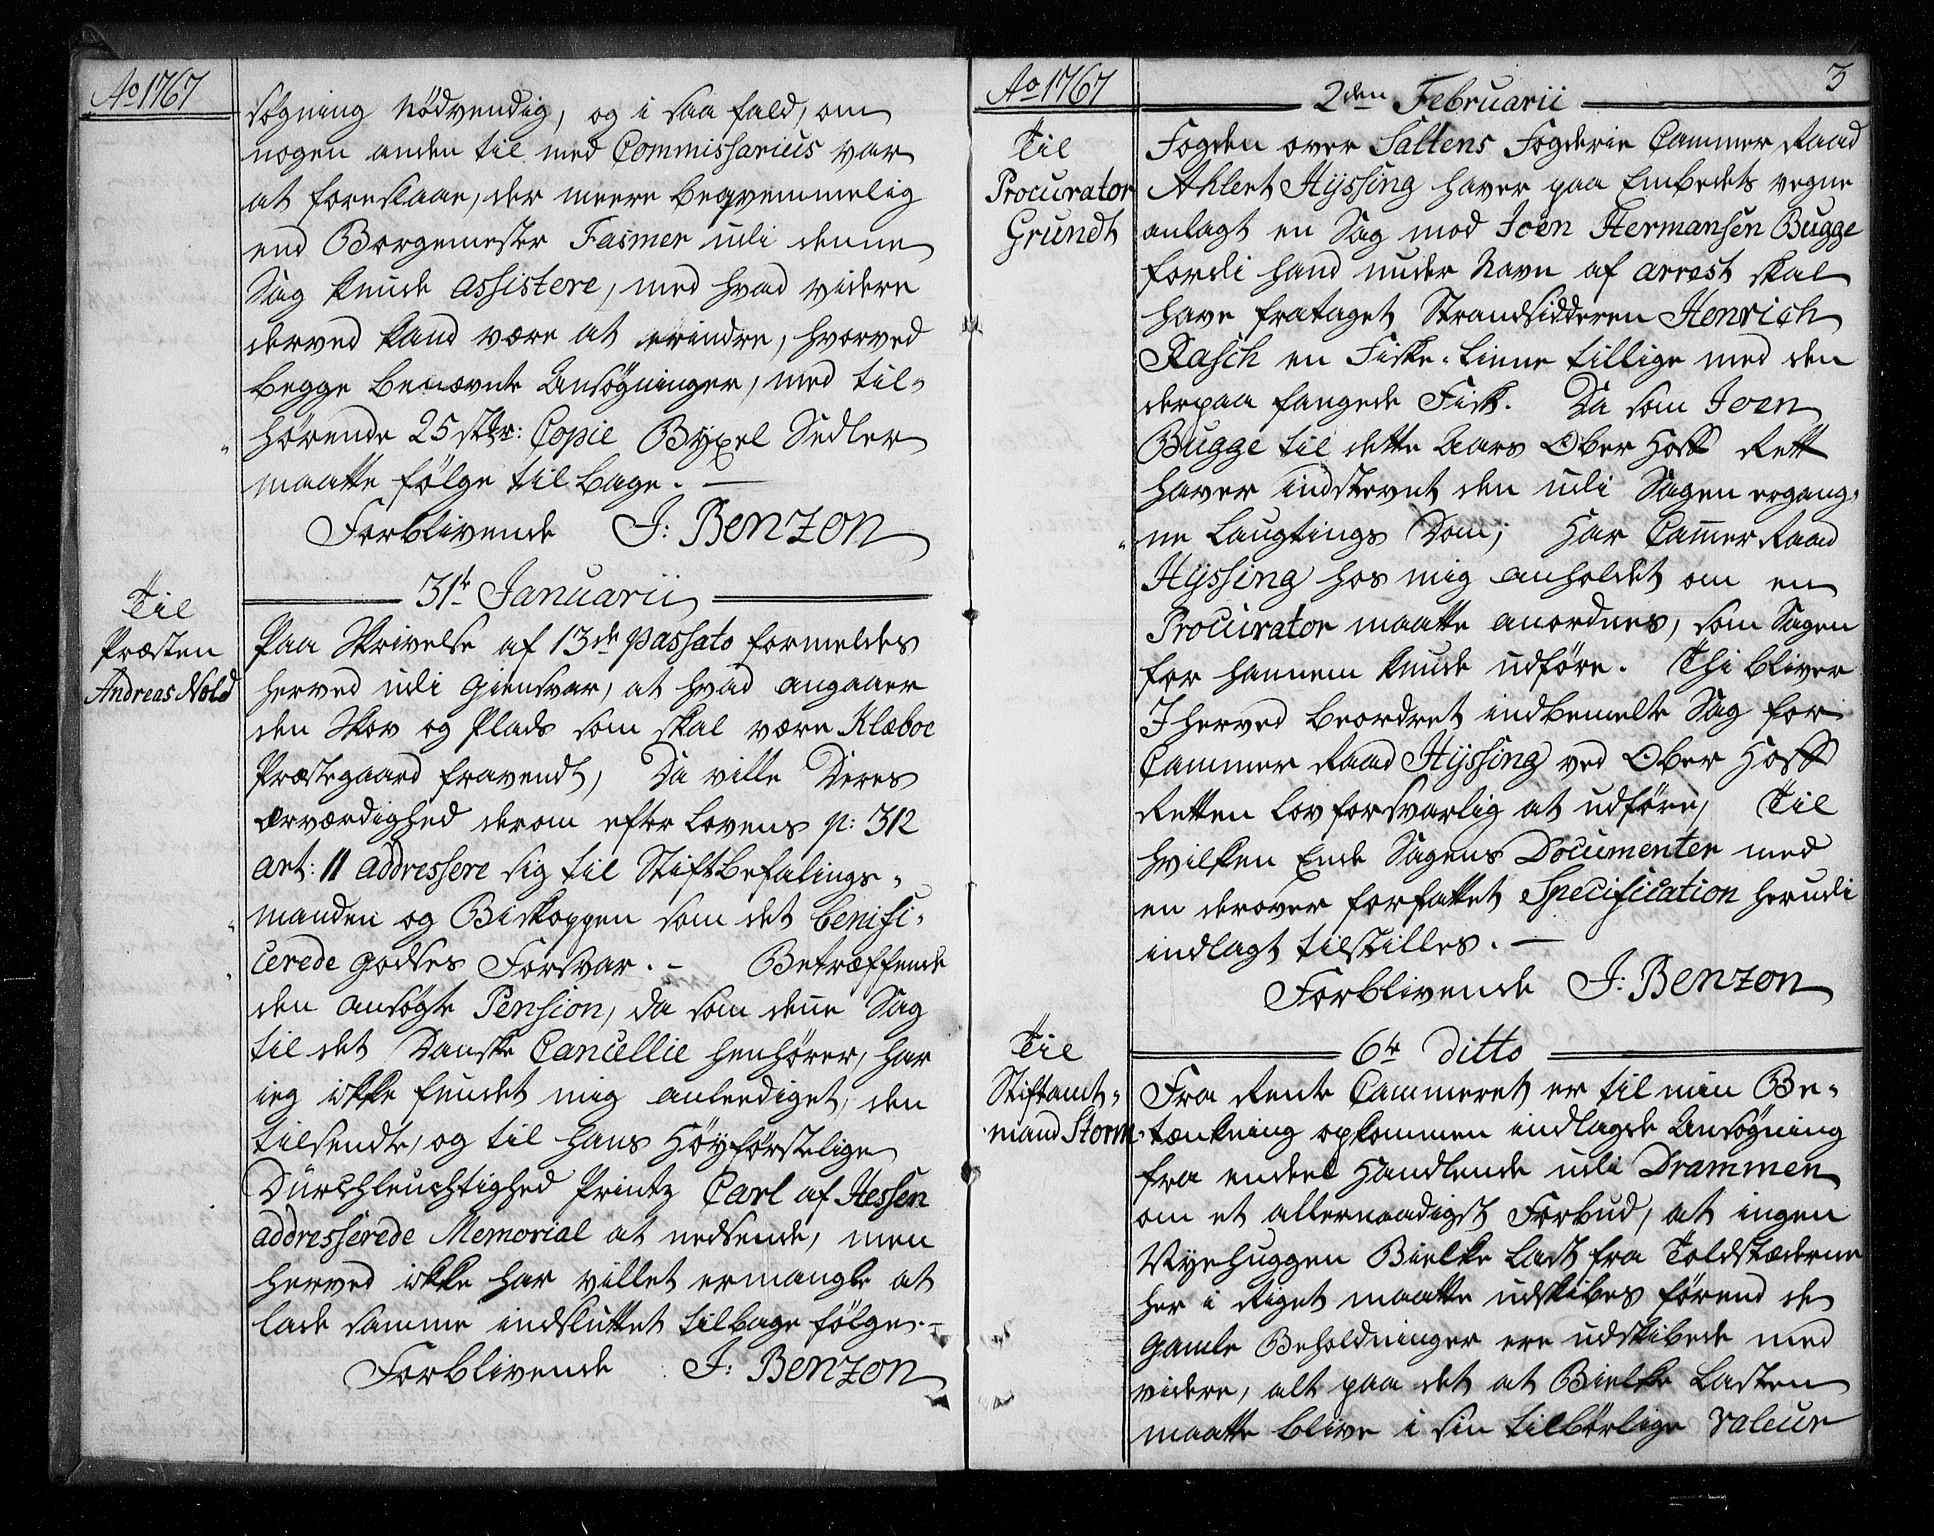 Ao 1767
søgning nödvendig, og i saa fald, om
nogen anden til med Commissarius var
at foreslaae, der meere beqvemmelig
end Borgemester Fasmer udi denne
Sag kunde assistere, med hvad videre
derved kand være at erindre, hvorved
begge benævnte Ansøgninger, med til-
hørende 25 stkr: Copie Býxel Sedler
maatte følge tilbage. —
Forblivende J: Benzon
31te Januarii
Til
Præsten
Andreas Nold
Paa Skrivelse af 13de passato formeldes
herved udi giensvar, at hvad angaaer
den Skov og Plads som skal være Klæboe
Præstegaard fravendt, Da ville Deres
Ærværdighed derom efter Lovens p: 312
art: 11 addressere sig til Stiftbefalings-
manden og Biskoppen som det benifi-
cerede godses Forsvar. - Betræffende
den ansøgte Pension, da som denne Sag
til det Danske Cancellie henhører, har
ieg ikke fundet mig anleediget, den
tilsendte, og til Hans Höyförstelige
Dürchleuchtighed Printz Carl af Hessen
addresserede Memorial at nedsende, men
herved ikke har villet ermangle at
lade samme indsluttet tilbage følge. -
Forblivende J: Benzon
Ao 1767
3
2den Februarii
Til
Procurator
Grundt
Fogden over Saltens Fogderie Cammer Raad
Ahlert Hÿssing haver paa Embedets vegne
anlagt en Sag mod Joen Hermansen Bugge
fordi hand under Navn af arrest skal
have frataget Strandsidderen Henrich
Rasch en Fiske-Linne tillige med den
derpaa fangede Fisk. Da som Joen
Bugge til dette Aars Ober Hoff Rett
haver indstevnt den udi Sagen ergang-
ne Laugtings Dom; Har Cammer Raad
Hÿssing hos mig anholdet om en
Procurator maatte anordnes, som Sagen
for hannem kunde udføre. Thi bliver
I herved beordret indbemelte Sag for
Cammer Raad Hÿssing ved Ober Hoff
Retten Lovforsvarlig at udføre, Til
hvilken Ende Sagens Documenter med
en derover forfattet Specification herudi
indlagt tilstilles. —
Forblivende J: Benzon
6te ditto
Til
Stiftamt-
mand Storm
Fra Rente Cammeret er til min Be-
tænkning opkommen indlagde Ansøgning
fra endeel Handlende udi Drammen
om et allernaadigst Forbud, at ingen
Nyehuggen Bielke Last fra Toldstæderne
her i Riget maatte udskibes førend de
gamle Beholdninger ere udskibede med
videre, alt paa det at Bielke Lasten
maatte blive i sin tilbørlige valeur